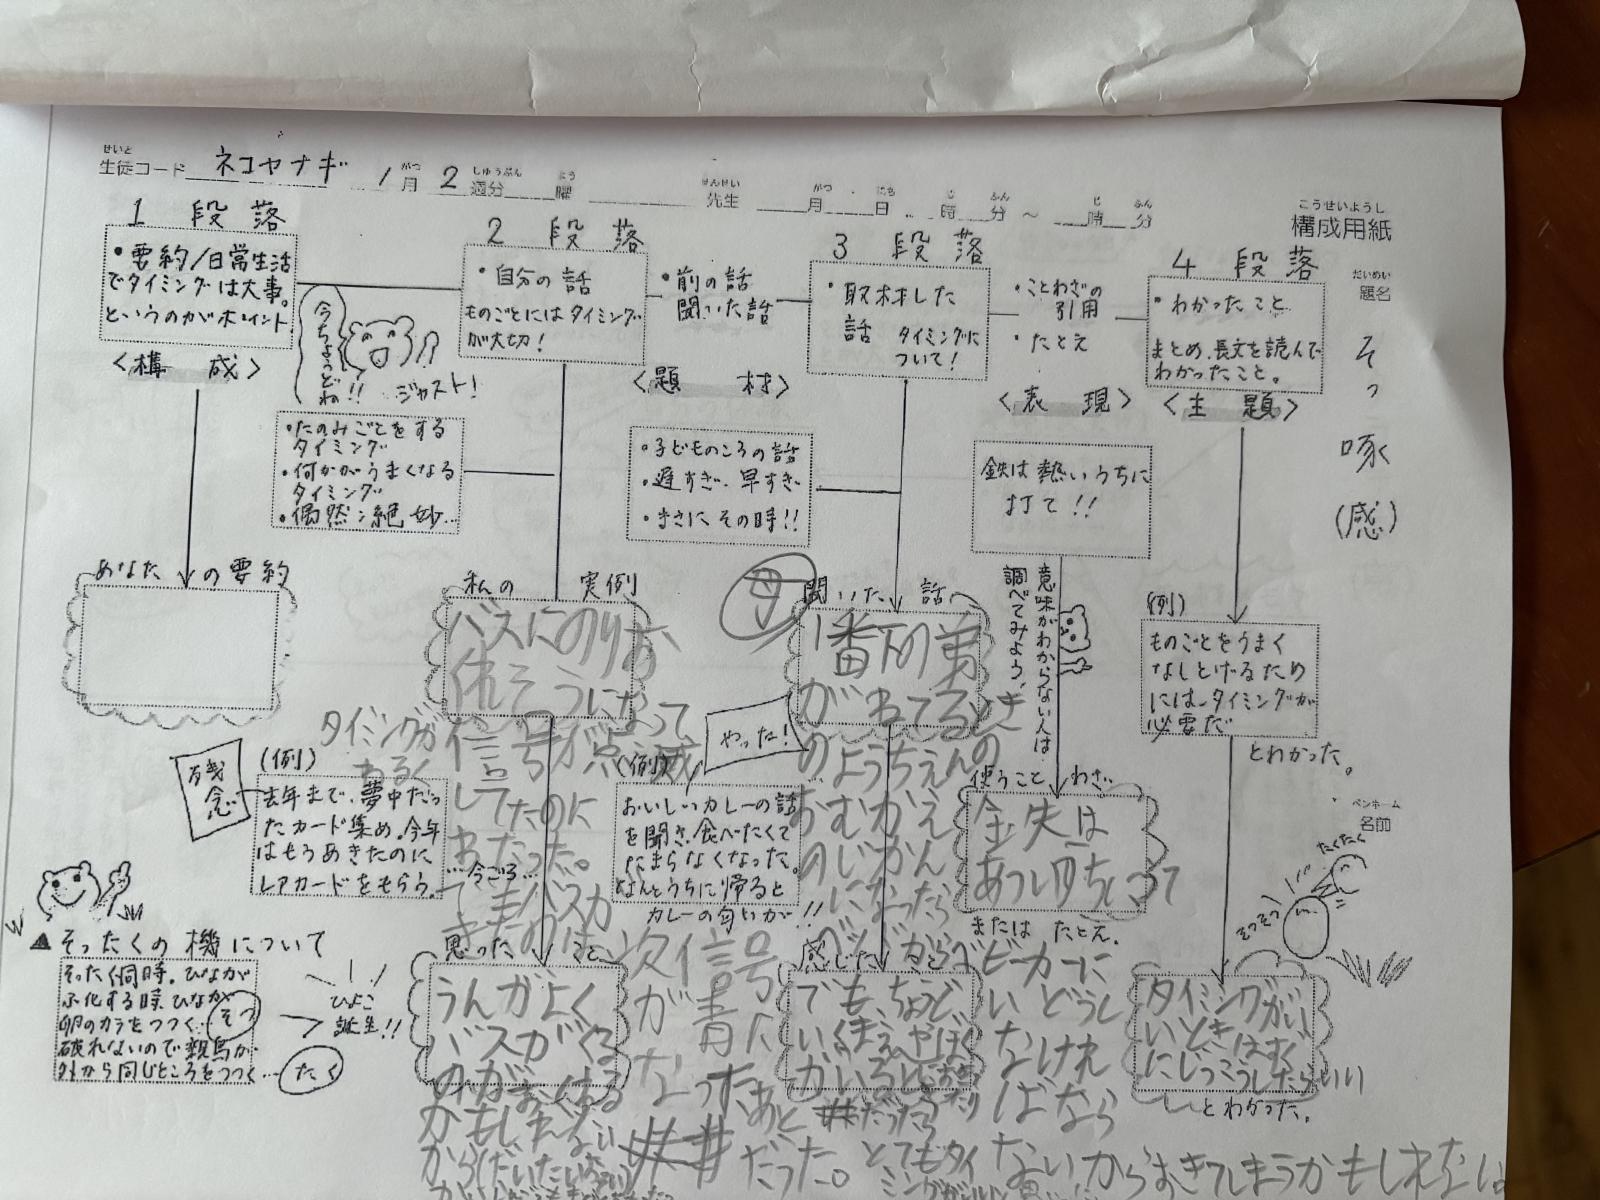 せいと
生徒コード ネコヤナギ 1月 2週分 曜 先生 月 日 時 分 ～ 時 分
こうせいようし
構成用紙
だいめい
題名
そっ啄(感)
ペンネーム
名前
1 段落
・要約/日常生活
でタイミングは大事。
というのがポイント
〈構 成〉
今ちょうどね!!
ジャスト!
2 段落
・自分の話
ものごとにはタイミング
が大切!
・前の話
聞いた話
〈題 材〉
3 段落
・取材した
話 タイミングに
ついて!
・ことわざの
引用
・たとえ
〈表 現〉
4 段落
・わかったこと
まとめ、長文を読んで
わかったこと。
〈主 題〉
・たのみごとをする
タイミング
・何かがうまくなる
タイミング
・偶然:絶妙…
・子どものころの話
・遅すぎ・早すぎ
・まさにその時!!
鉄は熱いうちに
打て!!
意味がわからない人は
調べてみよう。
あなたの要約
私の 実例
バスにのりお
くれそうになって
信号が点滅
してたのに
わたった。
タイミングが
わるく
母
聞いた話
1番下の弟
がねてるとき
のようちえんの
おむかえ
のじかん
になったら
(例)
ものごとをうまく
なしとげるため
には、タイミングが
必要だ
とわかった。
残念
(例)
去年まで、夢中だっ
たカード集め、今年
はもうあきたのに
レアカードをもらう。
…今ごろ…
やった!
(例)
おいしいカレーの話
を聞き、食べたくて
たまらなくなった。
なんとうちに帰ると
カレーの匂いが!!
使うことわざ
金失は
あついうちにうて
または たとえ。
たくたく
そつそつ
▲そったくの機について
そったく同時。ひなが
ふ化する時、ひなが
卵のカラをつつく…そつ
破れないので親鳥が
外から同じところをつつく…たく
ひよこ
誕生!!
思ったこと
うんがよく
バスがくる
のがおくれる
かもしれない
から
次信号
が青に
なったあと
だった。
感じた
でも、ちょうど
いくまえ
とてもタイ
ベビーカーに
いどうし
なけれ
ばなら
ないからおきてしまうかもしれない
タイミングがい
いときはすぐ
にじっこうしたらいい
とわかった。